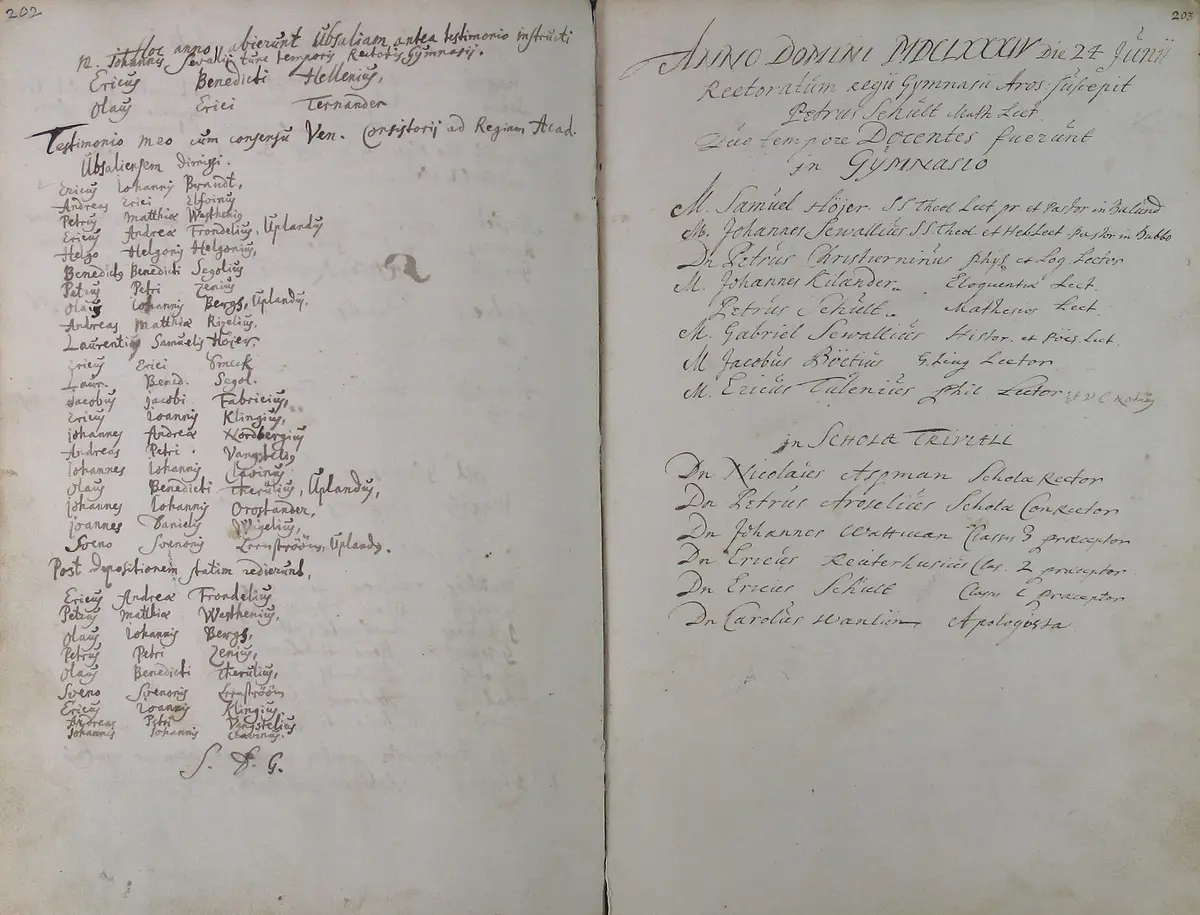 202
Hoc anno abierunt Ubsaliam, antea testimonio instructi
M. Johannis Sevallii tunc temporis Rectoris Gymnasij.
Ericus Benedicti Hellenius,
Olaus Erici Ternander
Testimonio meo cum consensu Ven. Consistorij ad Regiam Acad.
Ubsaliensem dimissi.
Ericus Iohannis Brandt,
Andreas Erici Elfvinus
Petrus Matthiæ Westhenig
Ericus Andreæ Frondelius, Uplandus
Helgo Helgonis Helgonius,
Benedicts Benedicti Segolius
Petrus Petri Zenius
Olaus Iohannis Bergh, Uplandus.
Andreas Matthiæ Rigelius,
Laurentius Samuelis Höjer.
Ericus Erici Smeck
Laur. Bened. Segol.
Jacobus Jacobi Fabricius,
Ericus Ioannis Klingius,
Johannes Andreæ Nordbergius
Andreas Petri. Vangstelius,
Iohannes Iohannis Clavinus
Olaus Benedicti Therulius, Uplandus,
Johannes Iohannis Orostander,
Joannes Danielis Wigelius,
Sveno Svenonis Lernströöm, Uplands.
Post depositionem statim redierunt,
Ericus Andreæ Frondelius
Petrus Matthiæ Westhenius,
Olaus Iohannis Bergh,
Petrus Petri Zenius,
Olaus Benedicti Therulius,
Sveno Svenonis Lernströöm
Ericus Ioannis Klingius,
Andreas Petri Vangstelius
Johannis Johannis Clavinus.
S. D. G.
203
ANNO DOMINI MDCLXXXIV Die 24 Junii
Rectoratum regii Gymnasii Aros: suscepit
Petrus Schult Math Lect.
Quo tempore Docentes fuerunt
in GYMNASIO
M. Samuel Höjer SS Theol Lect pr et Pastor in Balund
M. Johannes Sewallius SS Theol et Heb Lect Pastor in Bubbo
Dn Petrus Christierninus phys et Log Lector
M. Johannes Kilander Eloquentiæ Lect.
Petrus Schult Matheseos Lect.
M. Gabriel Sewallius Histor. et Poës. Lect.
M Jacobus Boëtius G. Ling Lector
M. Ericus Tulenius phil Lector
in SCHOLA TRIVIALI
Dn Nicolaus Aspman Scholæ Rector
Dn Petrus Aroselius Scholæ Conrector
Dn Johannes Wattman Classis 3 præceptor
Dn Ericus Reuterhusius Clas. 2 præceptor
Dn Ericus Schult Classis 1 præceptor
Dn Carolus Wanlin Apologista